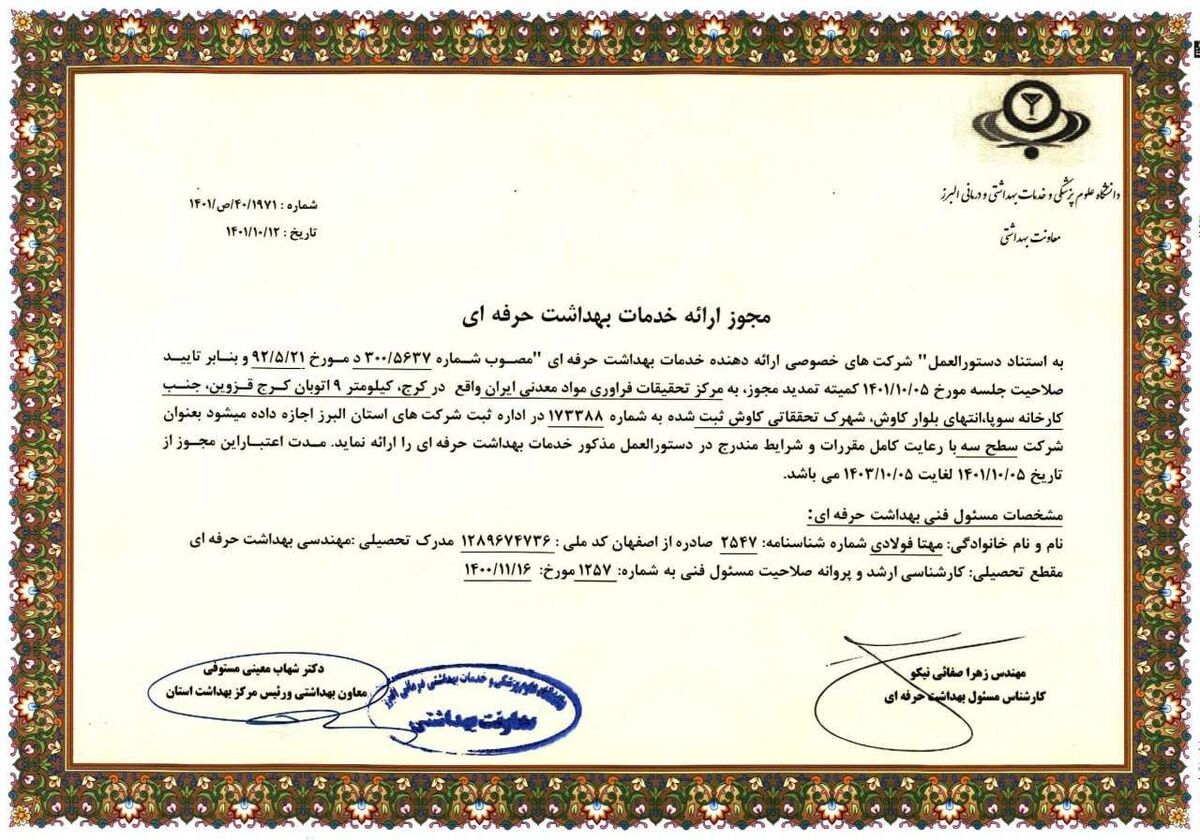 دانشگاه علوم پزشکی و خدمات بهداشتی و درمانی البرز
معاونت بهداشتی
شماره : ۱۴۰۱/ص/۴۰/۱۹۷۱
تاریخ : ۱۴۰۱/۱۰/۱۲
مجوز ارائه خدمات بهداشت حرفه ای
به استناد دستورالعمل" شرکت های خصوصی ارائه دهنده خدمات بهداشت حرفه ای "مصوب شماره ۳۰۰/۵۶۳۷ د مورخ ۹۲/۵/۲۱ و بنابر تایید
صلاحیت جلسه مورخ ۱۴۰۱/۱۰/۰۵ کمیته تمدید مجوز، به مرکز تحقیقات فراوری مواد معدنی ایران واقع در کرج، کیلومتر ۹ اتوبان کرج قزوین، جنب
کارخانه سوپا،انتهای بلوار کاوش، شهرک تحققاتی کاوش ثبت شده به شماره ۱۷۳۳۸۸ در اداره ثبت شرکت های استان البرز اجازه داده میشود بعنوان
شرکت سطح سه با رعایت کامل مقررات و شرایط مندرج در دستورالعمل مذکور خدمات بهداشت حرفه ای را ارائه نماید. مدت اعتباراین مجوز از
تاریخ ۱۴۰۱/۱۰/۰۵ لغایت ۱۴۰۳/۱۰/۰۵ می باشد.
مشخصات مسئول فنی بهداشت حرفه ای:
نام و نام خانوادگی: مهتا فولادی شماره شناسنامه: ۲۵۴۷ صادره از اصفهان کد ملی : ۱۲۸۹۶۷۴۷۳۶ مدرک تحصیلی :مهندسی بهداشت حرفه ای
مقطع تحصیلی: کارشناسی ارشد و پروانه صلاحیت مسئول فنی به شماره: ۱۲۵۷ مورخ: ۱۴۰۰/۱۱/۱۶
مهندس زهرا صفائی نیکو
کارشناس مسئول بهداشت حرفه ای
دکتر شهاب معینی مستوفی
معاون بهداشتی ورئیس مرکز بهداشت استان
معاونت بهداشتی